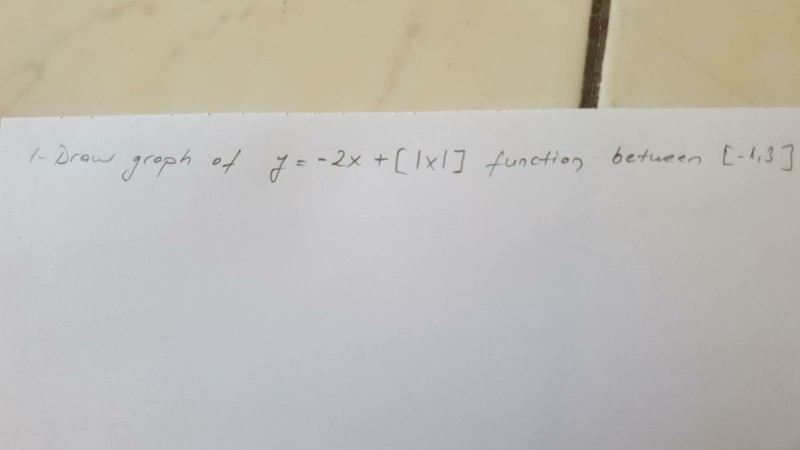 1- Draw graph of y = -2x + [|x|] function between [-1,3]